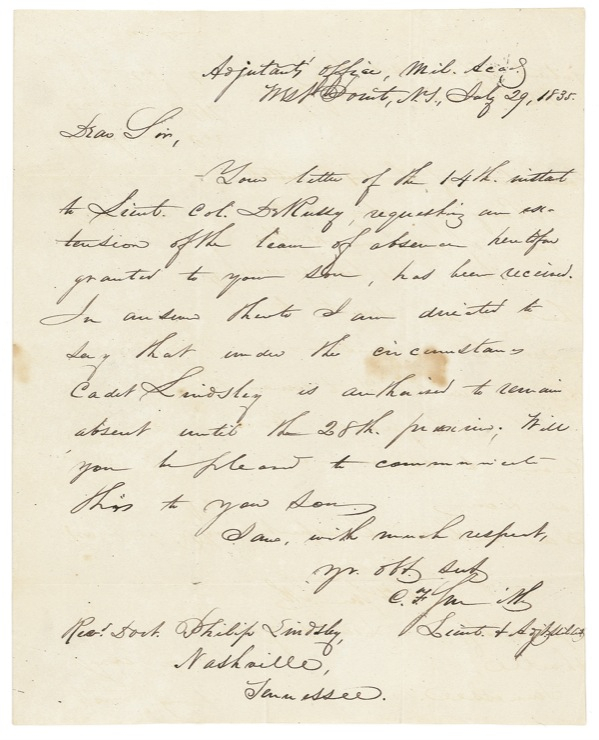 Adjutants' office, Mil. Acad.
West Point, N.Y., July 29, 1835.
Dear Sir,
Your letter of the 14th. instant
to Lieut. Col. DeRussy, requesting an ex-
tension of the leave of absence heretofore
granted to your son, has been received.
In answer thereto I am directed to
say that under the circumstances
Cadet Lindsley is authorised to remain
absent until the 28th. proximo; Will
you be pleased to communicate
this to your son.
I am, with much respect,
yr. obt. sert.
C. F. Smith
Lieut. & Adjt.
Revd. Doct. Philip Lindsley,
Nashville,
Tennessee.